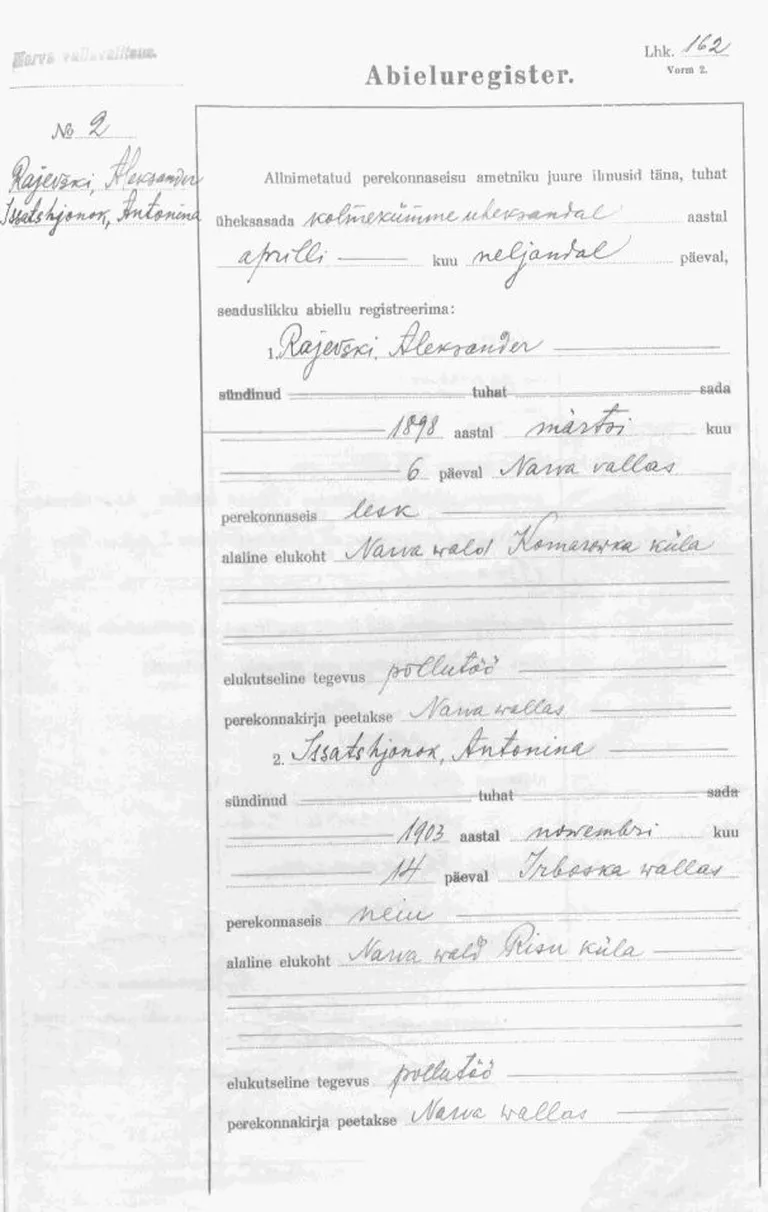 Narva vallavalitsus.
Lhk. 162
Vorm 2.
Abieluregister.
№ 2
Rajevski, Aleksander
Issatshjonok, Antonina
Allnimetatud perekonnaseisu ametniku juure ilmusid täna, tuhat
üheksasada kolmekümme üheksandal aastal
aprilli kuu neljandal päeval,
seaduslikku abiellu registreerima:
1. Rajevski, Aleksander
sündinud tuhat sada
1898 aastal märtsi kuu
6 päeval Narva vallas
perekonnaseis lesk
alaline elukoht Narva wald Komarowka küla
elukutseline tegevus põllutöö
perekonnakirja peetakse Narva wallas
2. Issatshjonok, Antonina
sündinud tuhat sada
1903 aastal nowembri kuu
14 päeval Irboska wallas
perekonnaseis neiu
alaline elukoht Narva wald Risu küla
elukutseline tegevus põllutöö
perekonnakirja peetakse Narva wallas